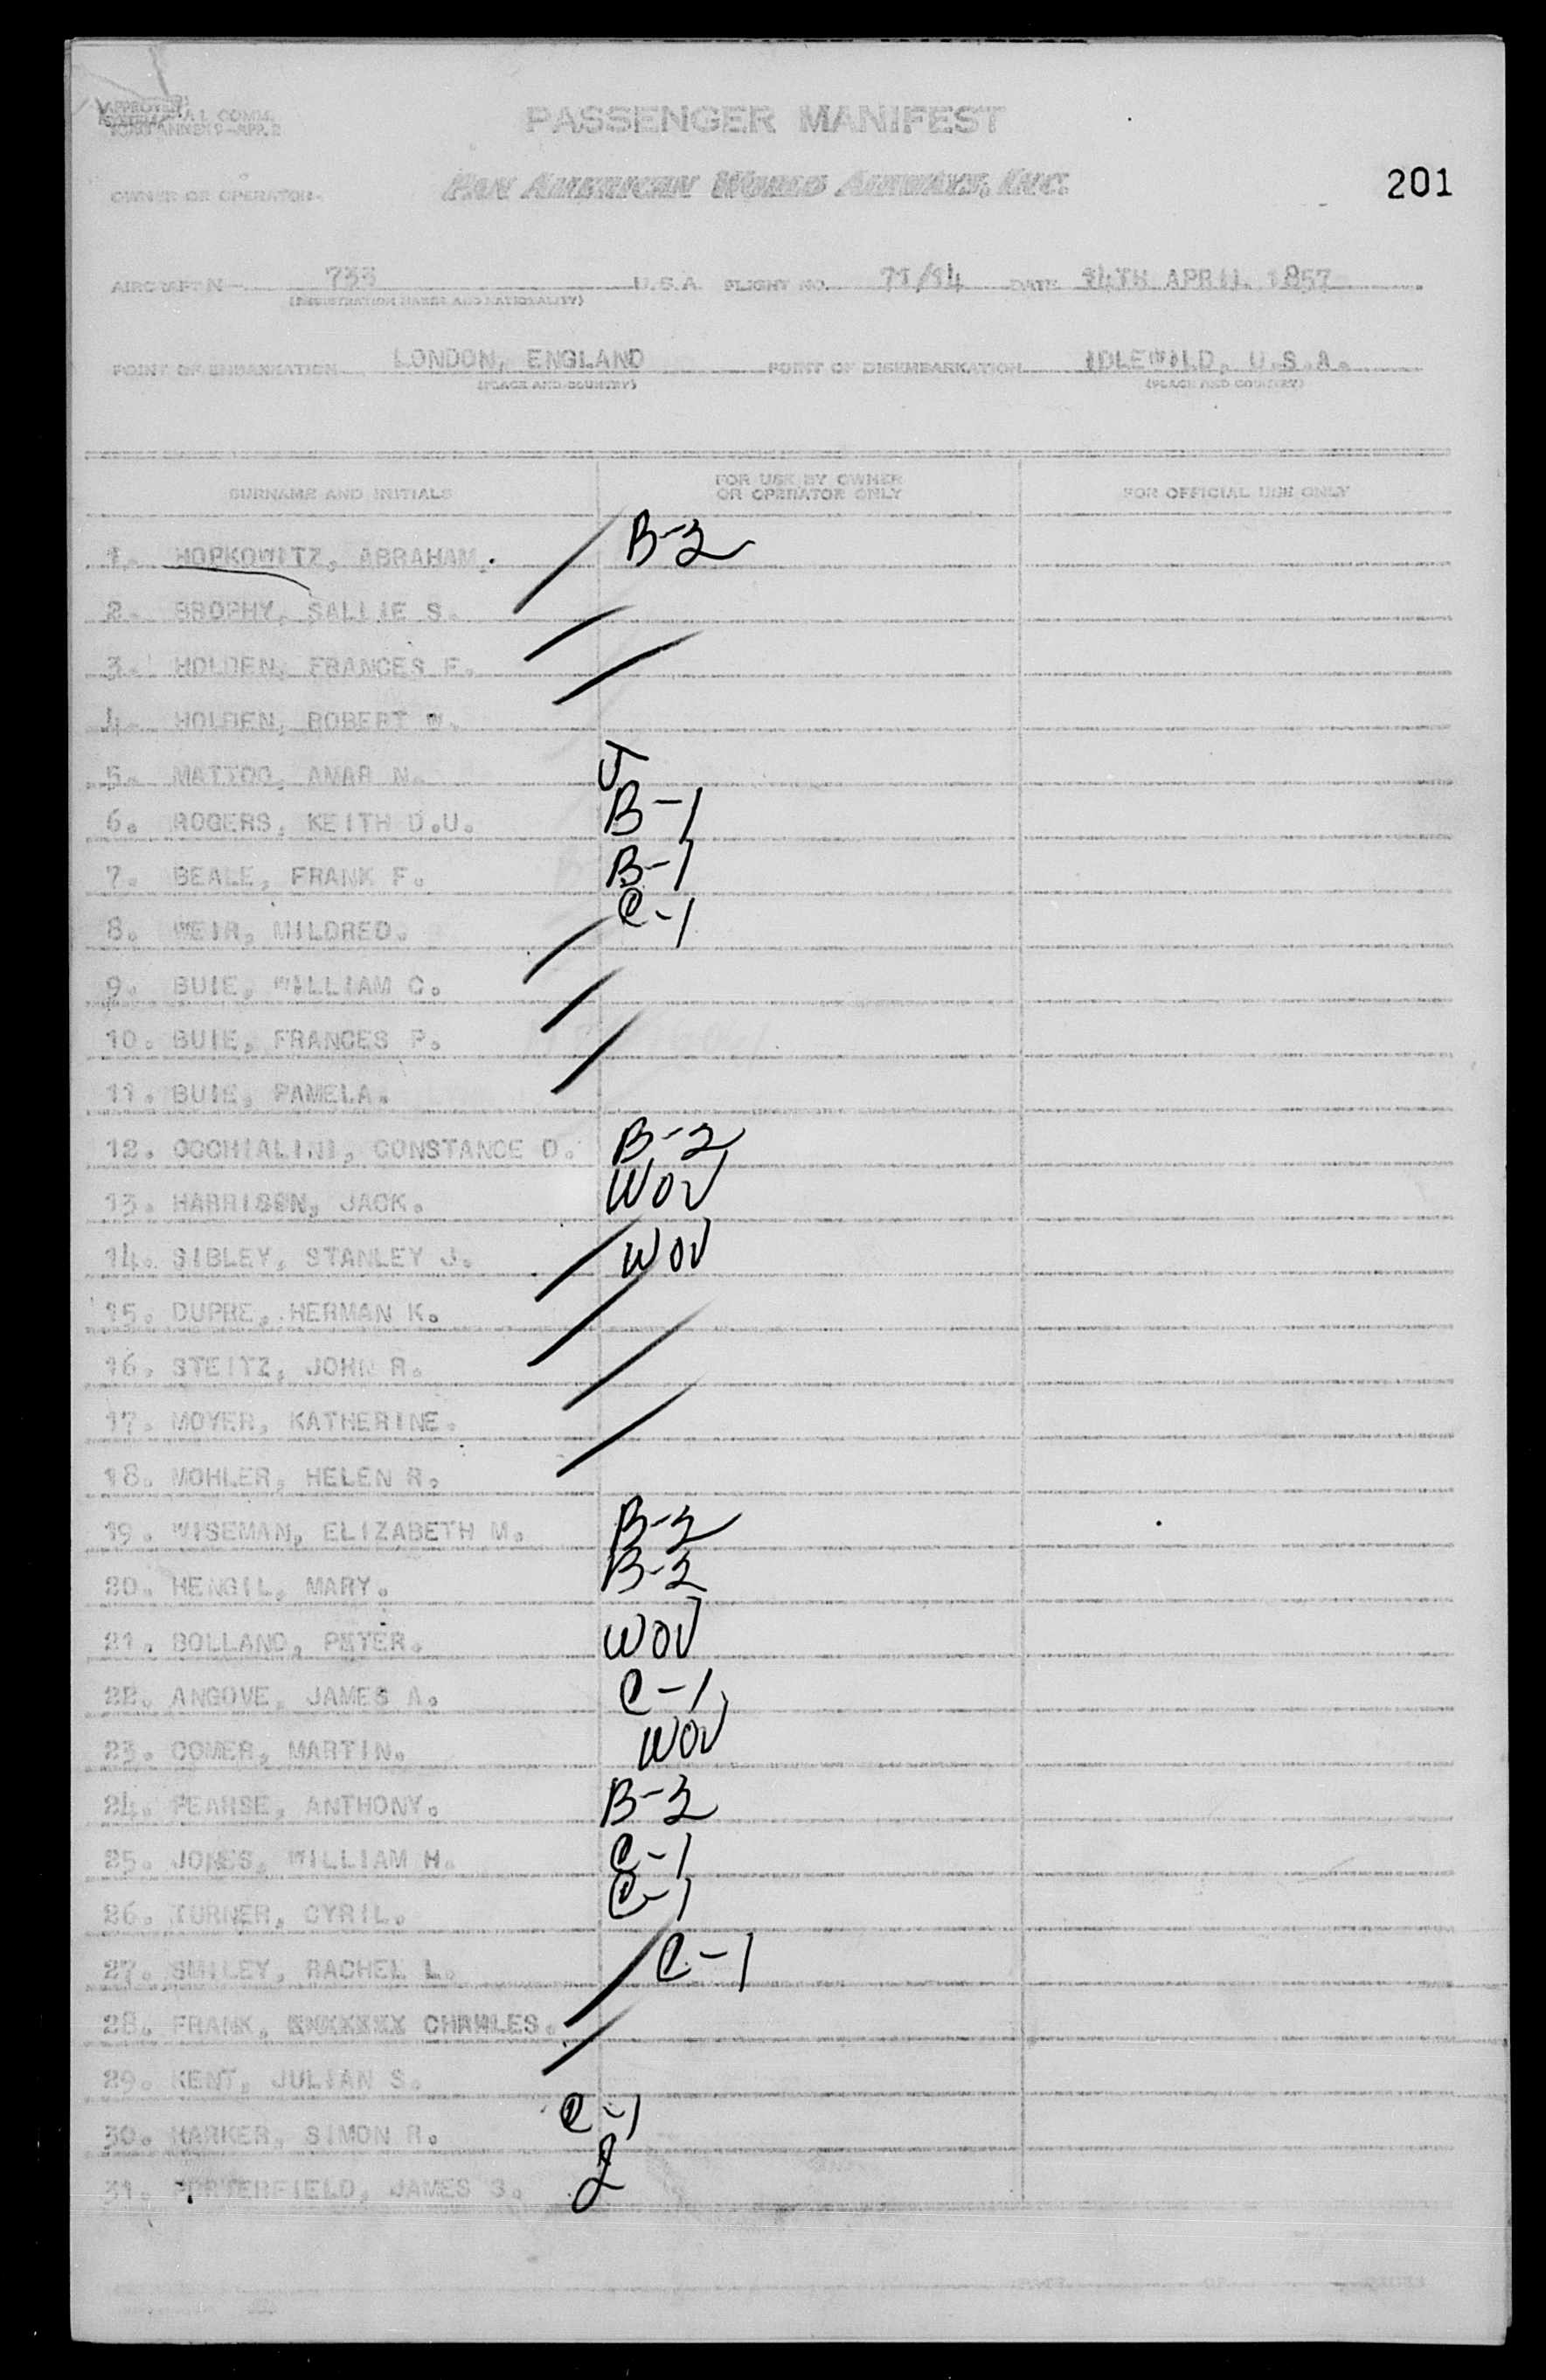 PASSENGER MANIFEST
OWNER OR OPERATOR
PAN AMERICAN WORLD AIRWAYS, INC.
201
AIRCRAFT N- 733 U.S.A. FLIGHT NO. 71/14 DATE 14TH APRIL 1957
(REGISTRATION MARKS AND NATIONALITY)
POINT OF EMBARKATION LONDON, ENGLAND POINT OF DISEMBARKATION IDLEWILD, U.S.A.
(PLACE AND COUNTRY) (PLACE AND COUNTRY)
SURNAME AND INITIALS FOR USE BY OWNER OR OPERATOR ONLY FOR OFFICIAL USE ONLY
1. HOPKOWITZ, ABRAHAM. B-2
2. BROPHY, SALLIE S.
3. HOLDEN, FRANCES E.
4. HOLDEN, ROBERT W.
5. MATTOO, AMAR N. J
6. ROGERS, KEITH D.U. B-1
7. BEALE, FRANK F. B-1
8. WEIR, MILDRED. C-1
9. BUIE, WILLIAM C.
10. BUIE, FRANCES P.
11. BUIE, PAMELA.
12. OCCHIALINI, CONSTANCE D. B-2
13. HARRISON, JACK. WOV
14. SIBLEY, STANLEY J. WOV
15. DUPRE, HERMAN K.
16. STEITZ, JOHN R.
17. MOYER, KATHERINE.
18. MOHLER, HELEN R.
19. WISEMAN, ELIZABETH M. B-2
20. HENGIL, MARY. B-2
21. BOLLAND, PETER. WOV
22. ANGOVE, JAMES A. C-1
23. COMER, MARTIN. WOV
24. PEARSE, ANTHONY. B-2
25. JONES, WILLIAM H. C-1
26. TURNER, CYRIL. C-1
27. SMILEY, RACHEL L. C-1
28. FRANK, CHARLES.
29. KENT, JULIAN S.
30. HARKER, SIMON R. C-1
31. PORTERFIELD, JAMES S.